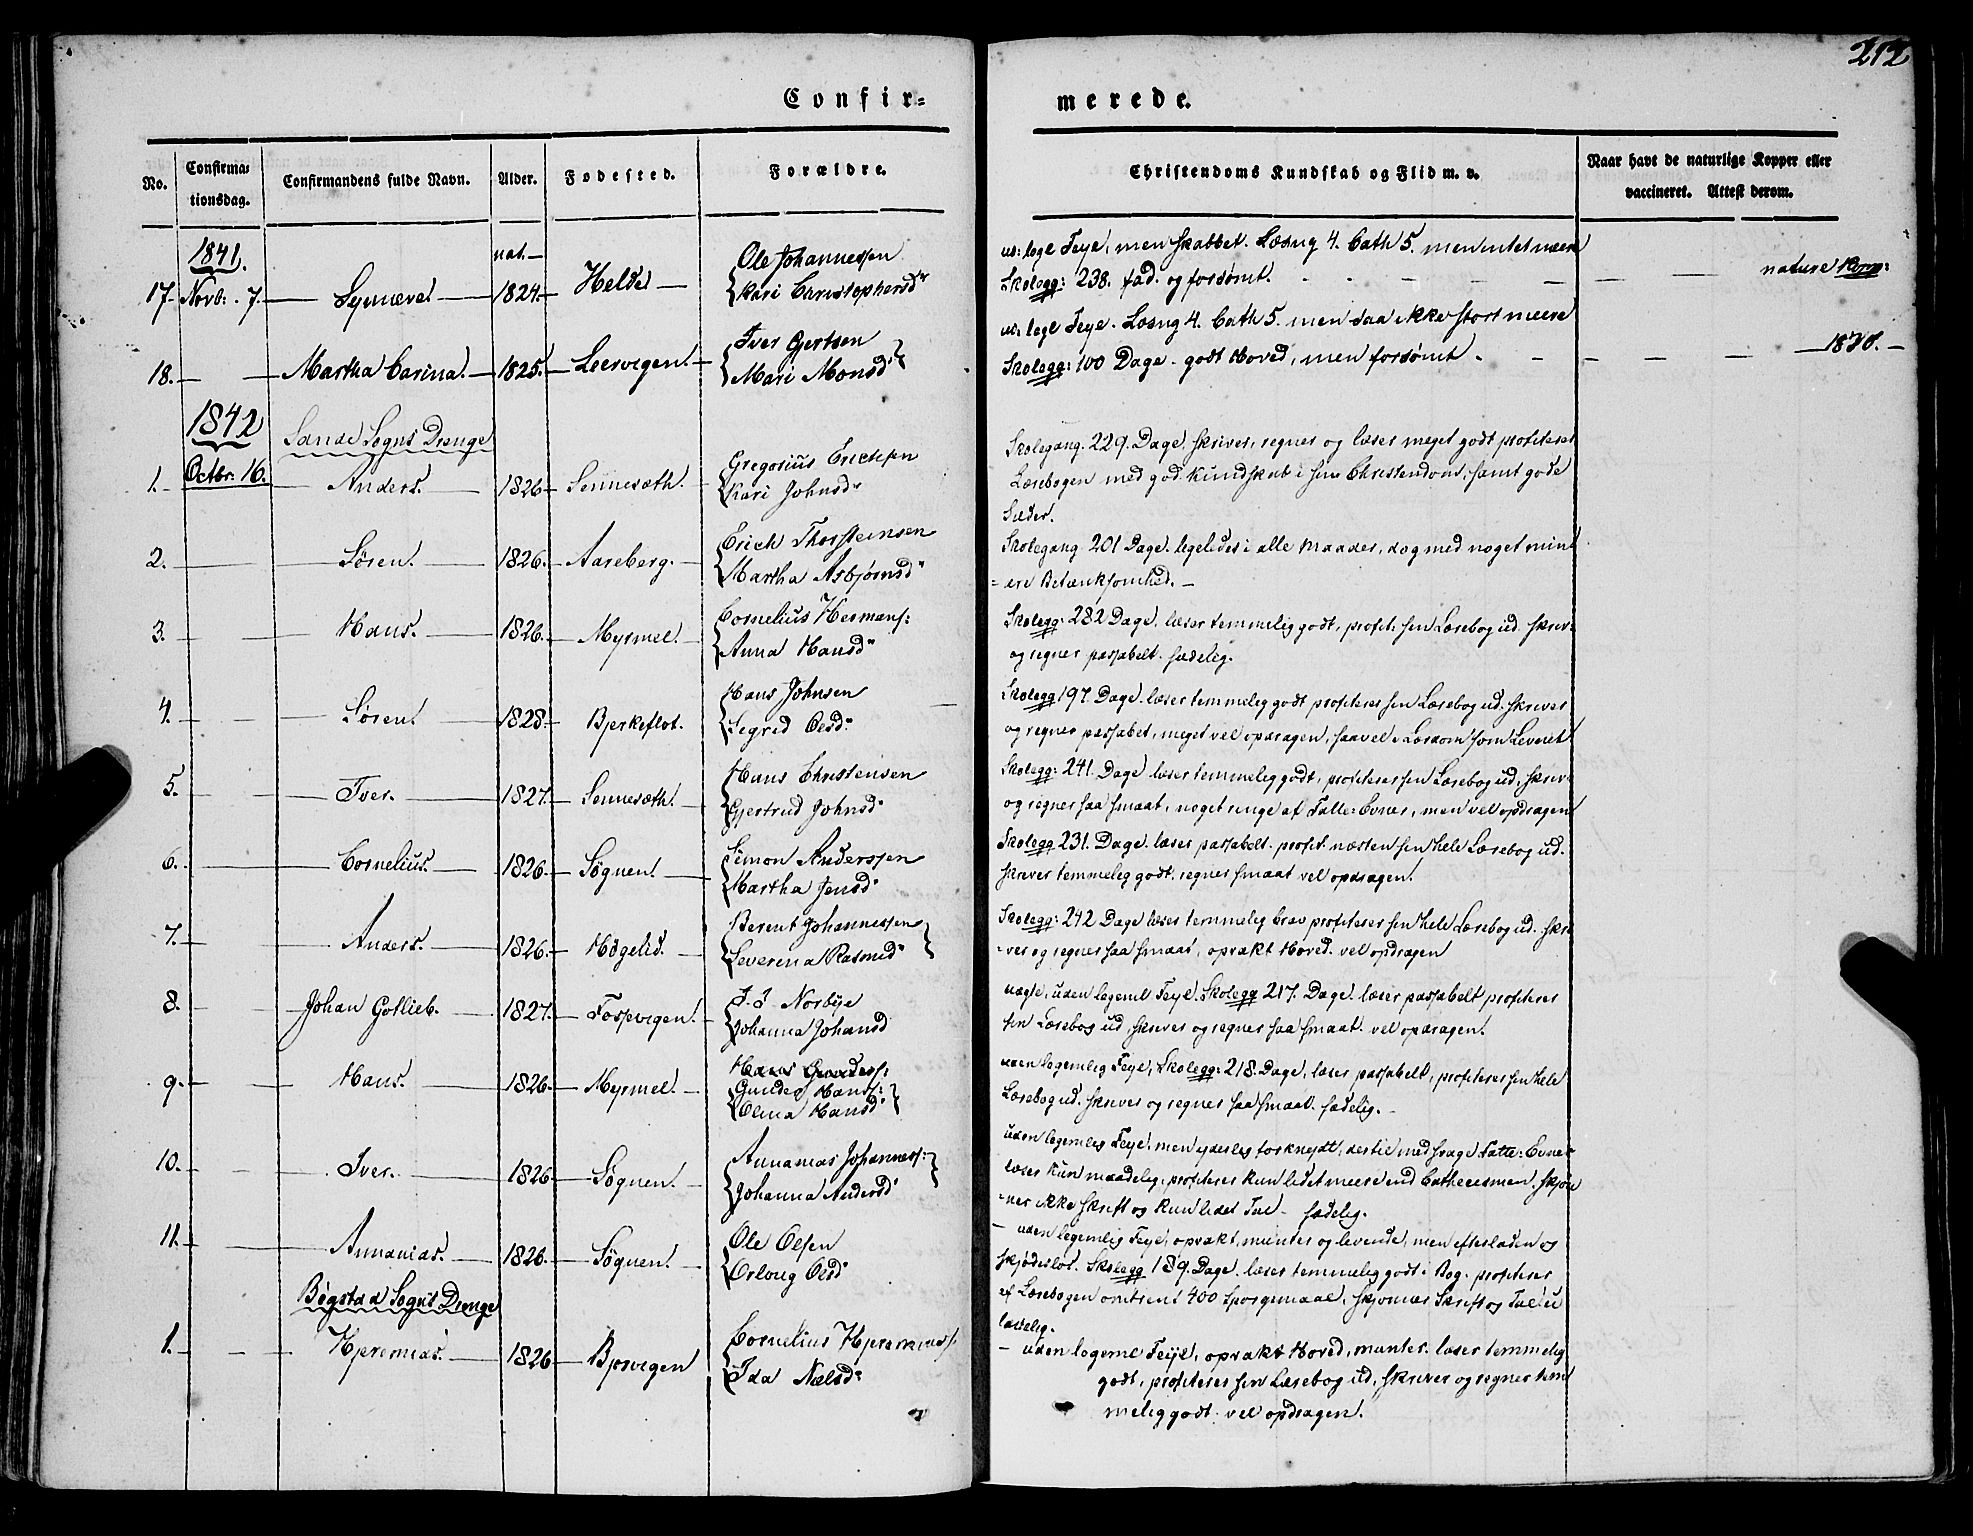 212
Confir=
merede.
No.
Confirma=
tionsdag.
Confirmandens fulde Navn.
Alder.
Fødested.
Forældre.
Christendoms Kundskab og Flid m. v.
Naar havt de naturlige Kopper eller
vaccineret. Attest derom.
1841.
nat.
17. Novb: 7. Synneve 1824. Helde
Ole Johannessen
Kari Christophersdr
legl Feyl, men skabbet. Læsng 4. Cath 5. men intet meere
Skolegg: 238. fad. og forsømt.
nature Kopp:
18. Martha Carina. 1825. Leervigen.
Iver Gertsen
Mari Monsd
legl Feyl. Læsng 4. Cath 5. men saa ikke stort meere
Skolegg: 100 Dage. godt Hoved, men forsømt
1842
Sande Sogns Drenge
Octbr. 16.
1. Anders. 1826 Sennesæth.
Gregorius Erichsen
Kari Johnsd
Skolegang. 229. Dage. skriver, regner og læser meget godt profiterer
Læsebogen med god Kundskab i sin Christendom, samt gode
Sæder.
2. Søren. 1826. Aareberg.
Erich Thorsteinsen
Martha Asbjørnsd
Skolegang 201 Dage. ligeledes i alle Maader, dog med noget mind
=ere Betænksomhed.
3. Hans. 1826. Myrmel.
Cornelius Hermans:
Anna Hansd
Skolegg: 282 Dage. læser temmelig godt, profit: sin Læsebog ud. skriv:
og regner passabelt. sædelig.
4. Søren. 1828. Bjerkeflot.
Hans Johnsen
Sigrid Olsd:
Skolegg 197. Dage. læser temmelig godt profiterer sin Læsebog ud. skriver
og regner passabet, meget vel opdragen, saavel i Lærdom som Levnet
5. Iver. 1827. Sennesæth.
Hans Christensen
Gjertrud Johnsd
Skolegg: 241. Dage læser temmelig godt, profiterer sin Læsebog ud, skriv:
og regner saa smaat, noget ringe af Fatte=Evner, men vel opdragen
6. Cornelius. 1826. Søgnen.
Simon Anderssen
Martha Jensd
Skolegg 231. Dage. læser passabelt. profit. næsten sin hele Læsebog ud.
skriver temmelig godt, regner smaat vel opdragen.
7. Anders. 1826. Høgelid.
Berent Johannessen
Severina Rasmusd
Skolegg: 242 Dage læser temmelig brav profiterer sin hele Læsebog ud. skri
=ver og regner saa smaat, opvakt Hoved. vel opdragen
8. Johan Gotlieb. 1827. Fossevigen.
J. J Norbye
Johanna Johansd
uden legeml Feyl. Skolegg 217. Dage. læser passabelt profiterer
sin Læsebog ud, skriver og regner saa smaat. vel opdragen.
9. Hans. 1826. Myrmel.
Gunder Hans:
Olina Hansd
uden legemlig Feyl, Skolegg: 218. Dage, læser passabelt, profiterer sin hele
Læsebog ud. skriver og regner saa smaat. sædelig.
10. Iver. 1826. Søgnen.
Annanias Johanness:
Johanna Andersd
uden legemlig Feyl, men yderlig forknydt, dertil med svage Fatte=Evner
læser kun maadelig, profiterer kun lidet meere end Cathecismen. skjøn
=ner ikke Skrift og kun lidet Tal. sædelig.
11. Annanias. 1826. Søgnen.
Ole Olsen
Orloug Olsd
uden legemlig Feyl, opvakt, munter og levende, men efterladen og
skjødesløs. Skolegg 189. Dage. læser temmelig godt i Bog. profiterer
af Læsebogen omtrent 400 Spørgsmaal, skjønner Skrift og Tal
Bøgstad Sogns Drenge
1. Hjeremias. 1826 Bjørvigen
Cornelius Hjeremias:
Ida Nielsd
uden legeml Feyl, opvakt Hoved, munter. læser temmelig
godt, profiterer sin Læsebog ud, skriver og regner tem
melig godt. vel opdragen.